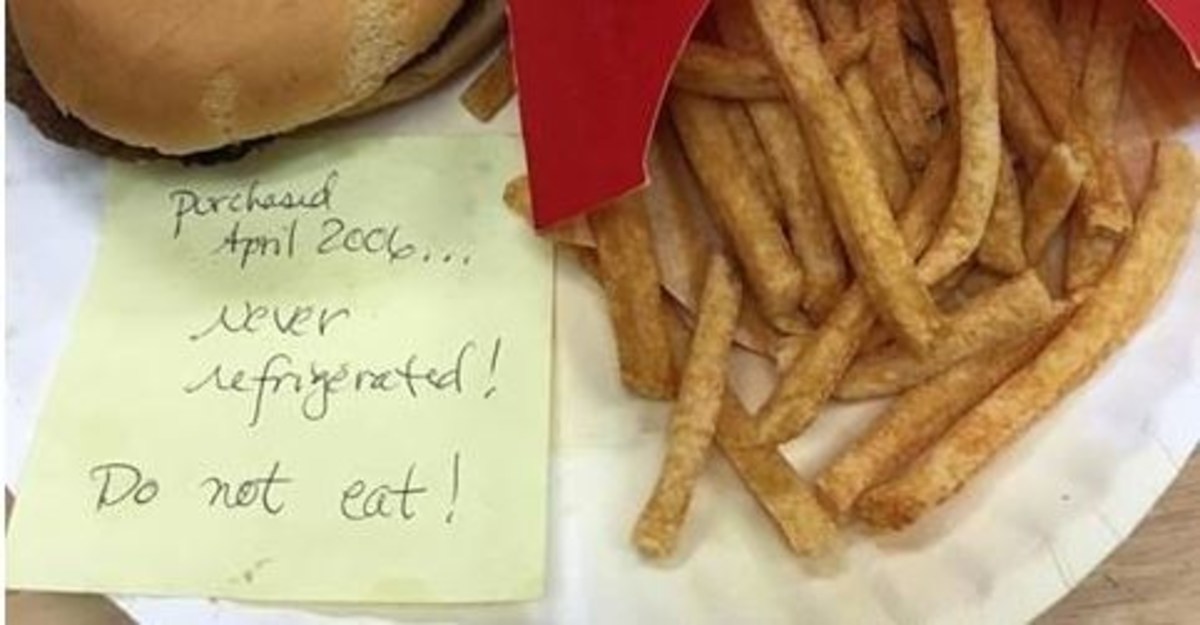 purchased
April 2006...
Never
refrigerated!
Do not eat!